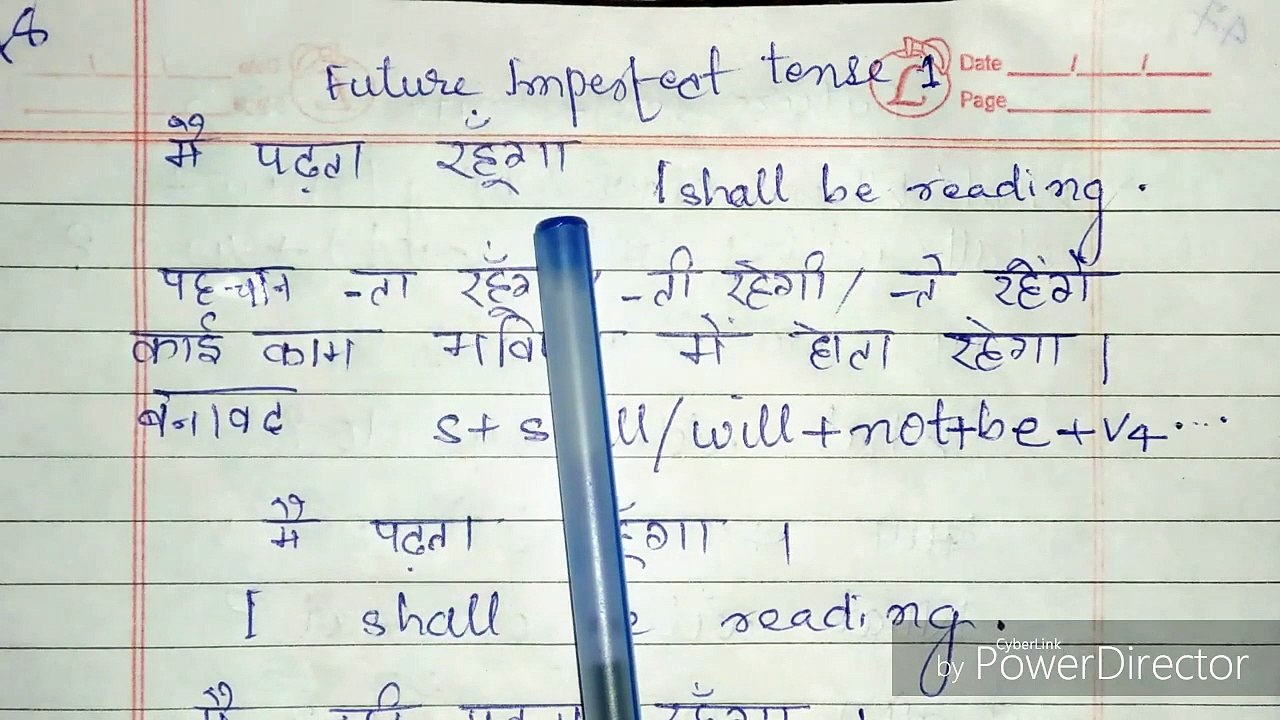 Future Imperfect tense 1
Date / /
Page
मैं पढ़ता रहूँगा I shall be reading.
पहचान -ता -ती रहेगी / -ते रहेंगे
कोई काम में होता रहेगा।
बनावट S + /will + not + be + V4 ....
मैं पढ़ता ।
I shall reading.
CyberLink
by PowerDirector